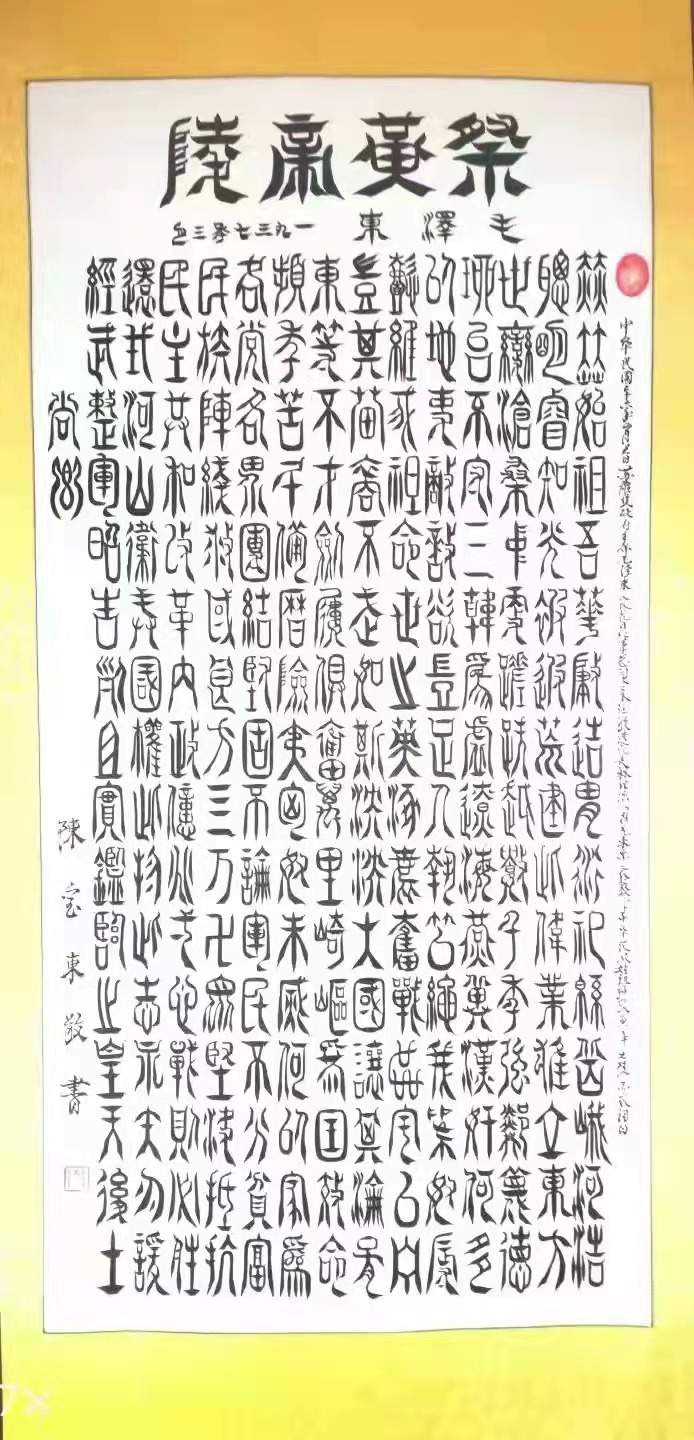 祭黃帝陵
毛澤東 一九三七年三月
赫赫始祖吾華肇造冑衍祀緜岳峨河浩
聰明睿知光被遐荒建此偉業雄立東方
世變滄桑中更蹉跌越數千年強鄰蔑德
琉台不守三韓爲虛遼海燕冀漢奸何多
以地事敵敵欲豈足人執笞繩我爲奴辱
懿維我祖命世之英涿鹿奮戰區宇以寧
豈其苗裔不武如斯泱泱大國讓其淪胥
東等不才劍屨俱奮萬里崎嶇爲国效命
頻年苦鬥備曆險夷匈奴未滅何以家爲
各党各界團結堅固不論軍民不分貧富
民族陣綫救國良方三万卍眾堅決抵抗
民主共和改革內政億兆一心戰則必胜
還我河山衛我國權此物此志永矢勿諼
經武整軍昭告列且實鑑臨之皇天後土
尚饗
陳宝東敬書